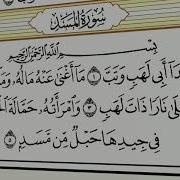 سُورَةُ المَسَدِ
بِسْمِ اللَّهِ الرَّحْمَٰنِ الرَّحِيمِ
دَا أَبِي لَهَبٍ وَتَبَّ ١ مَا أَغْنَىٰ عَنْهُ مَالُهُ وَمَ
لَىٰ نَارًا ذَاتَ لَهَبٍ ٣ وَامْرَأَتُهُ حَمَّالَةَ الْ
فِي جِيدِهَا حَبْلٌ مِّن مَّسَدٍ ٥